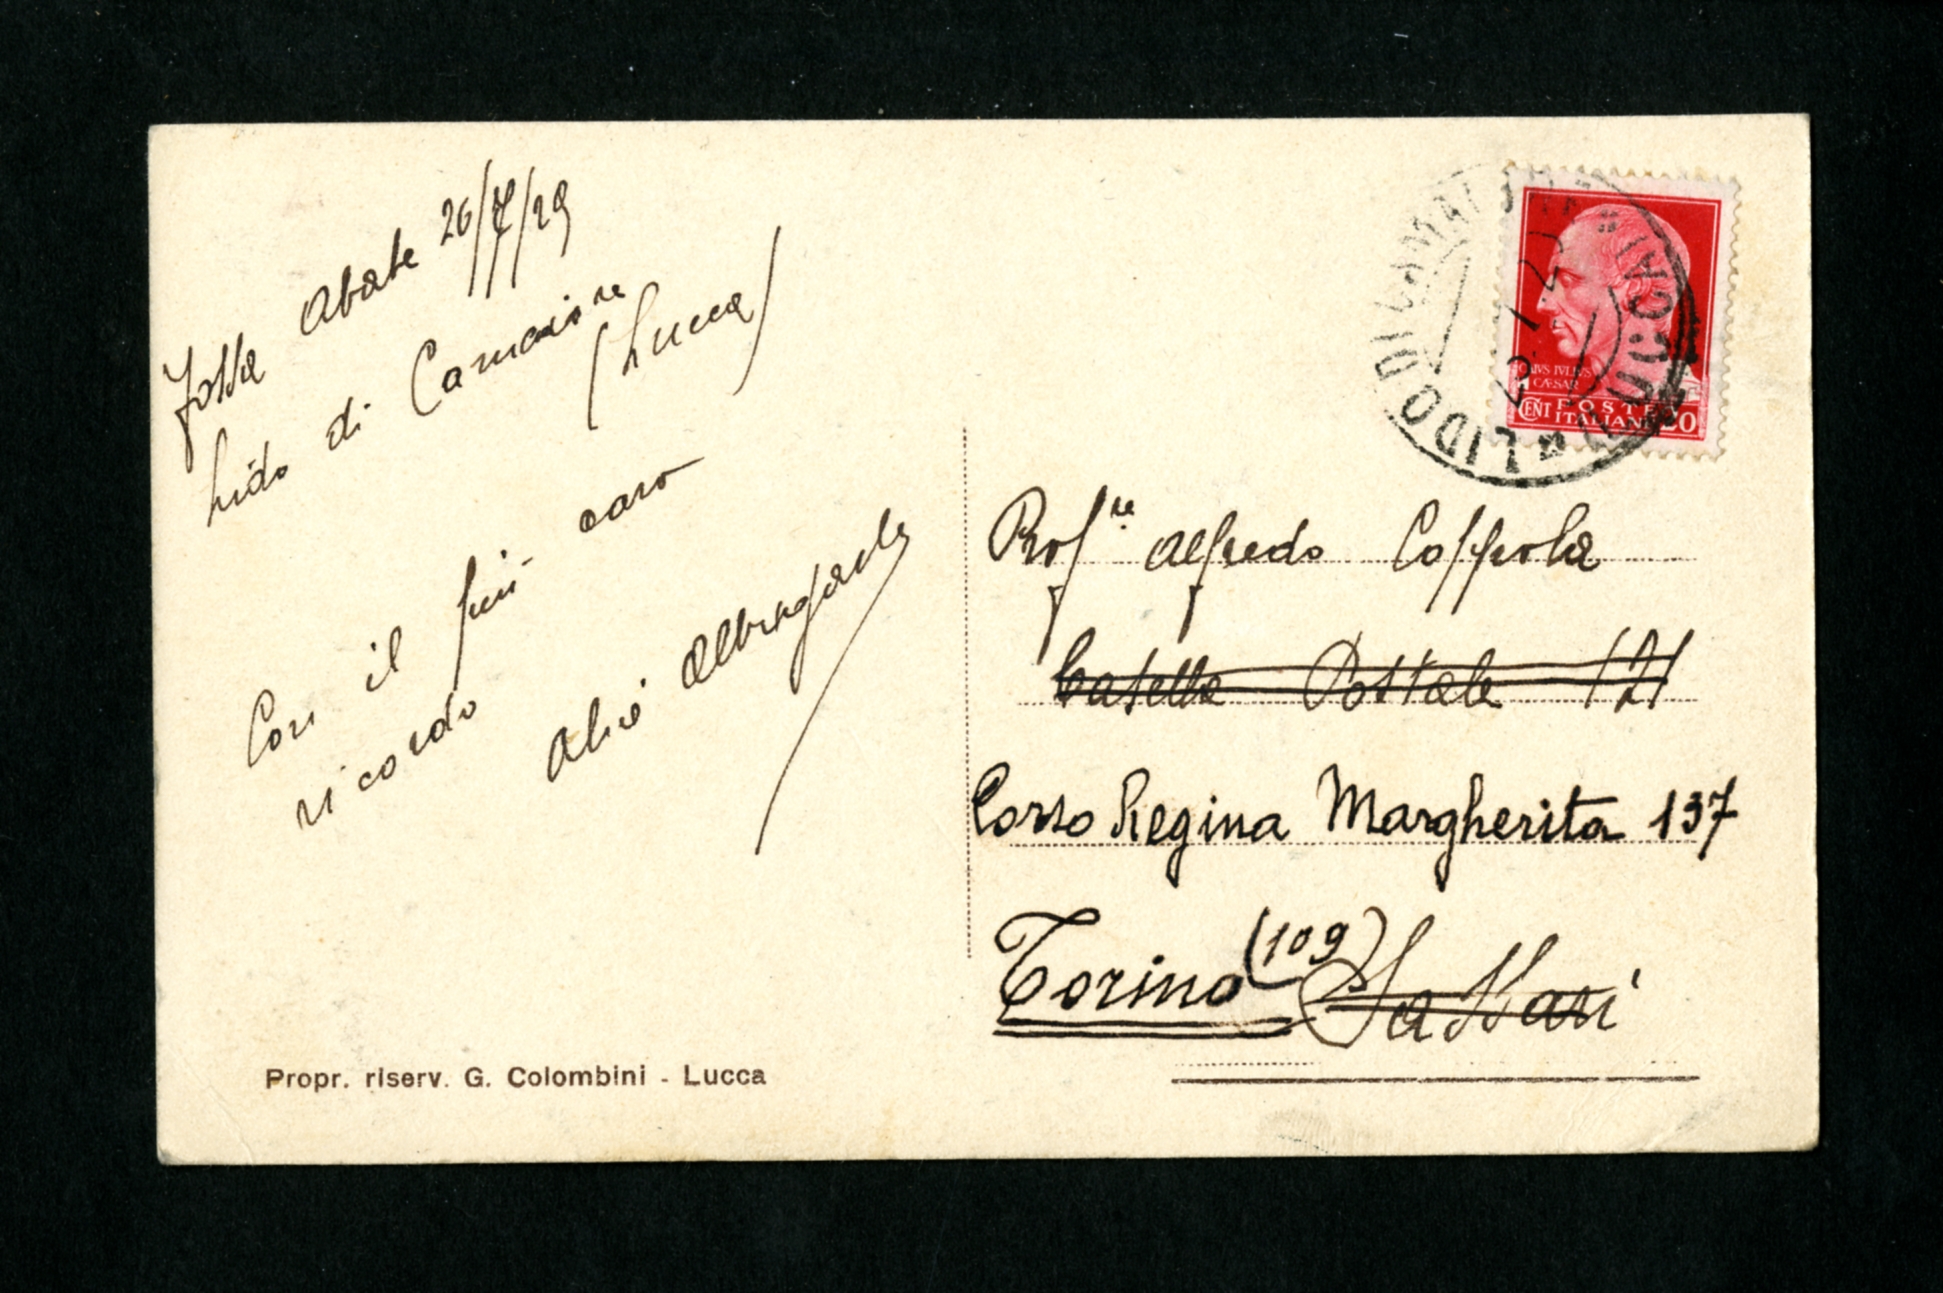 Fossa Abate 26/7/29
Lido di Camaiore
(Lucca)
Con il più caro
ricordo
LIDO DI CAMAIORE
LUCCA
CAIVS IVLIVS
CÆSAR
CENT 20
POSTE
ITALIANE
Prof.re Alfredo Coppola
Casella Postale 121
Corso Regina Margherita 137
Torino (109) Sassari
Propr. riserv. G. Colombini - Lucca